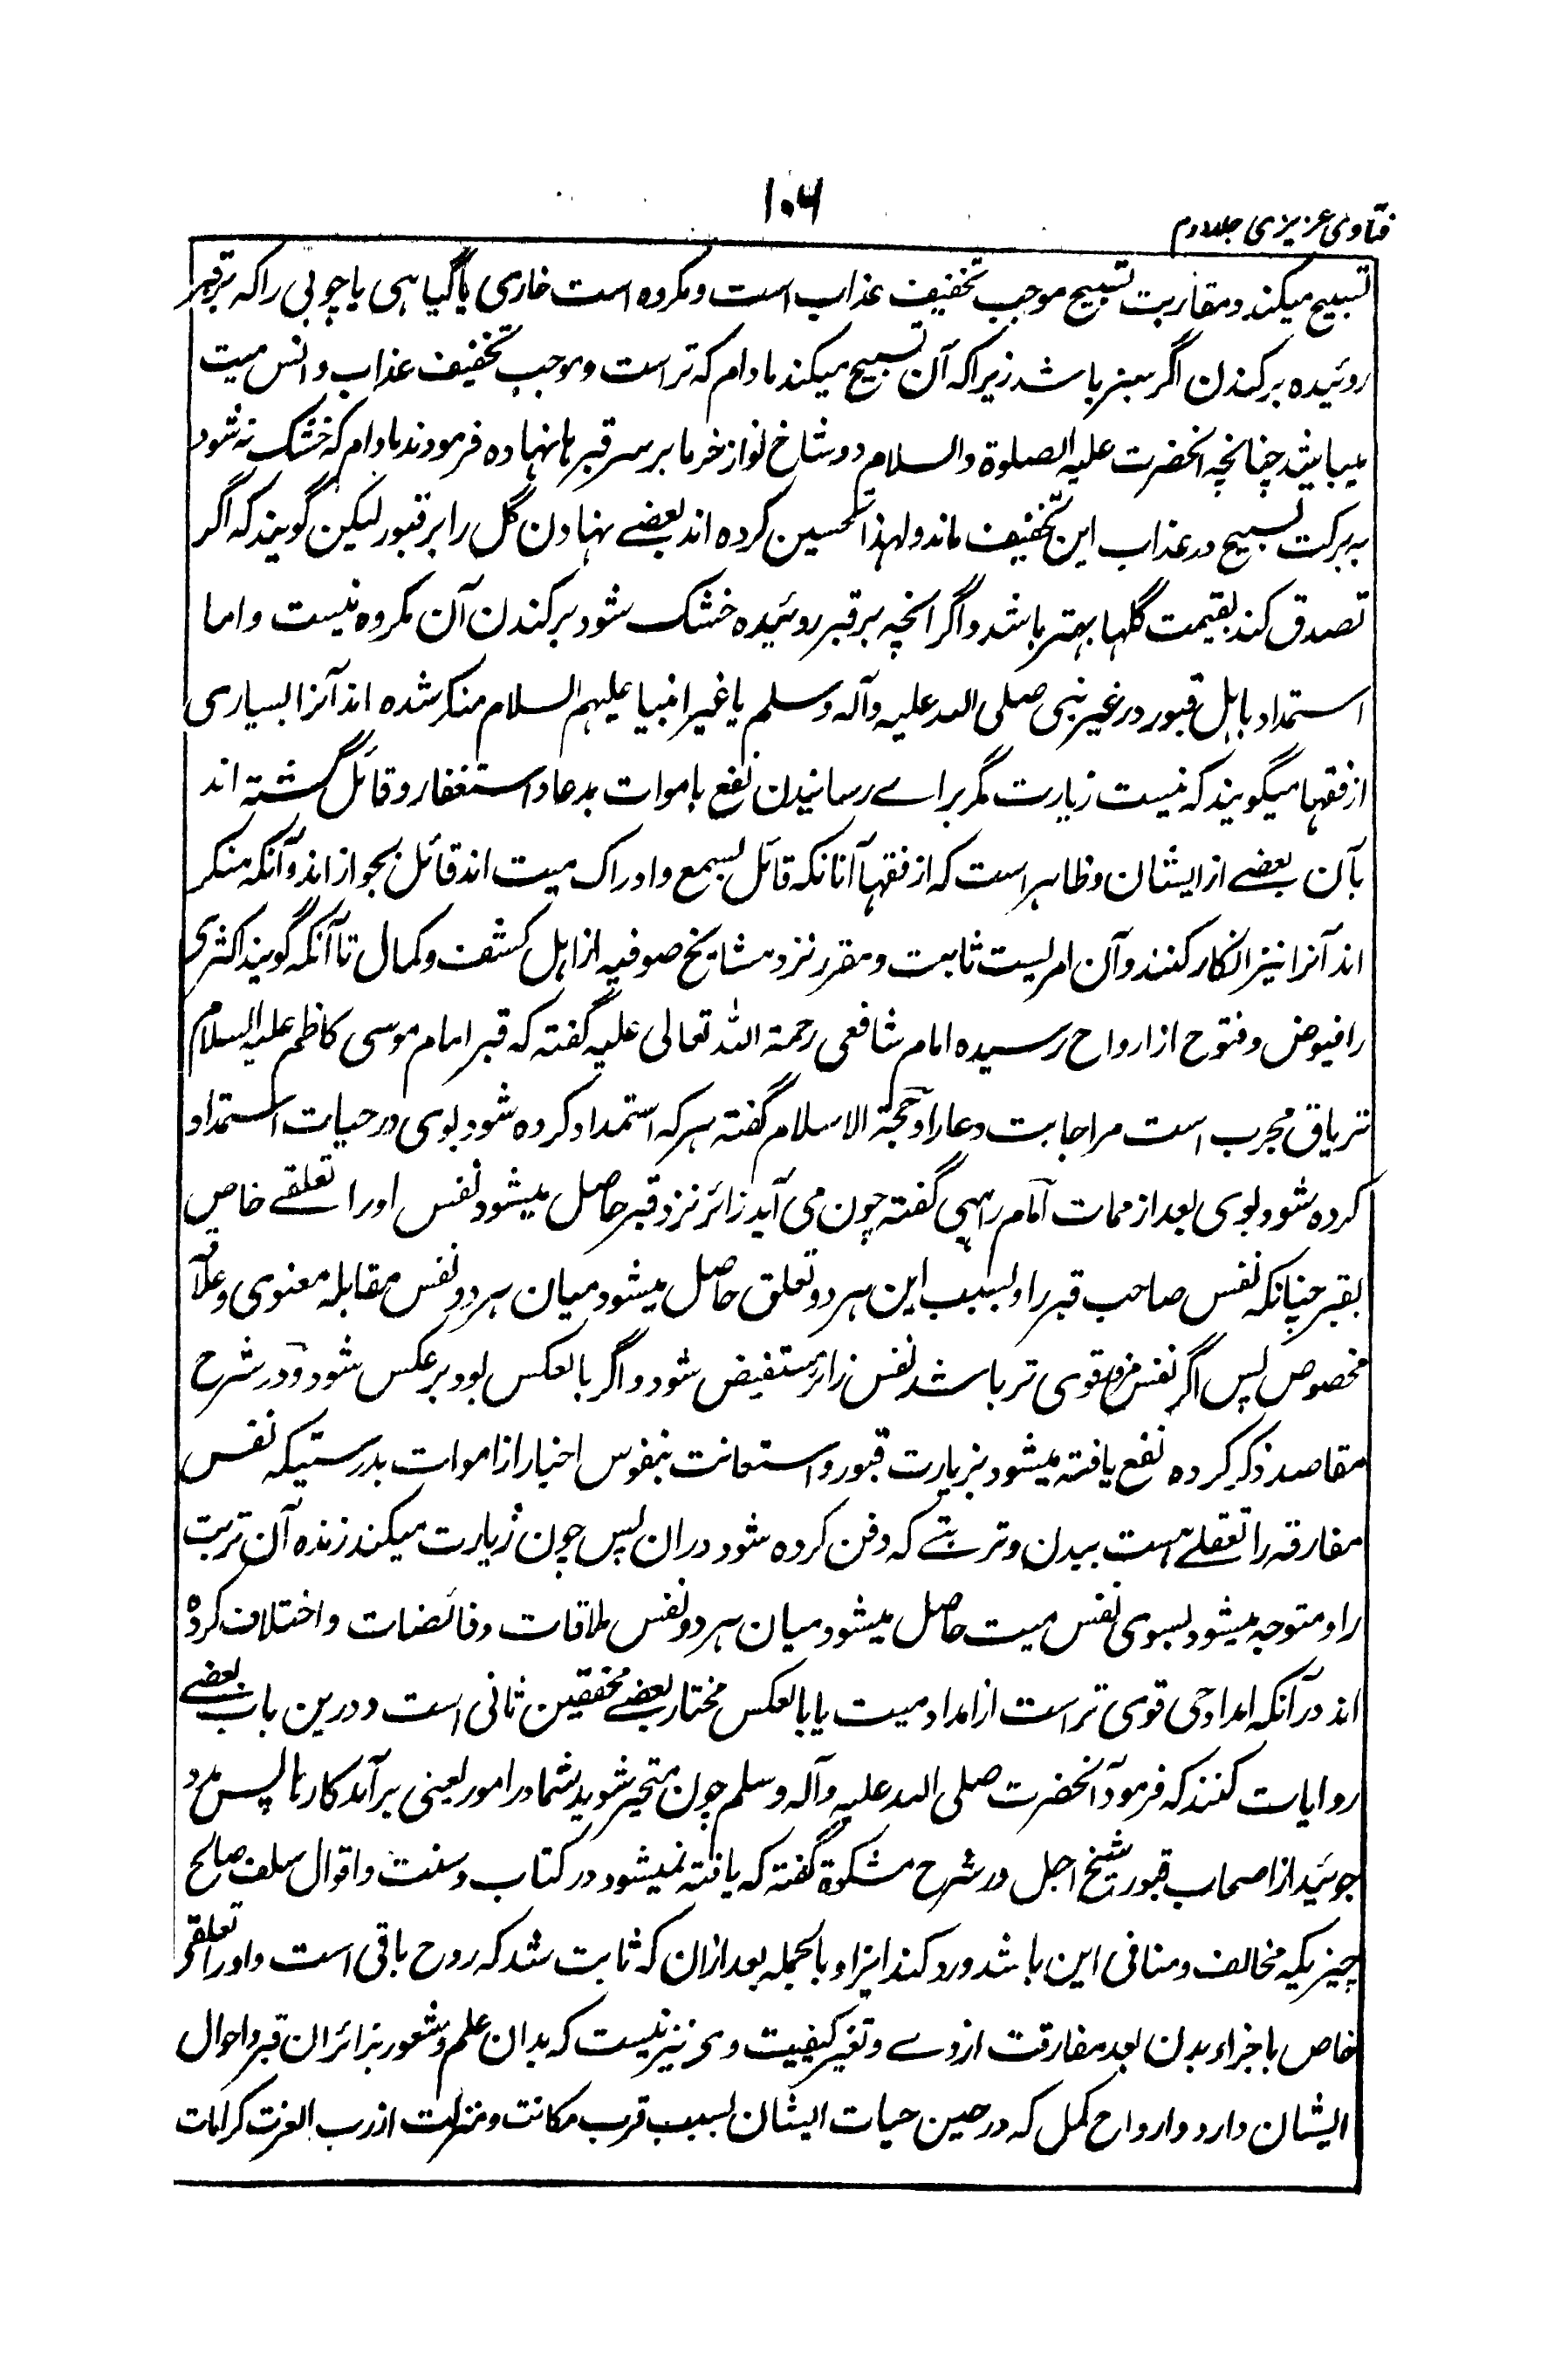 ۱۰۶
فتاوی عزیزی جلد دوم
تسبیح میکند و مقاربت تسبیح موجب تخفیف عذاب است و مکروه است خاری یا گیاهی یا چوبی را که بر قبر
روئیده برکندن اگر سبز باشد زیرا که آن تسبیح میکند مادام که تر است و موجب تخفیف عذاب و انس میت
میباشد چنانچه آنحضرت علیه الصلوة والسلام دو شاخ نو از خرما بر سر قبرها نهاده فرمودند مادام که خشک نه شود
به برکت تسبیح در عذاب این تخفیف ماند ولهذا تحسین کرده اند بعضے نهادن گل را بر قبور لیکن گویند که اگر
تصدق کند بقیمت گلها بهتر باشد و اگر آنچه بر قبر روئیده خشک شود برکندن آن مکروه نیست و اما
استمداد باہل قبور در غیر نبی صلی اللہ علیه وآله وسلم یا غیر انبیا علیهم السلام منکر شده اند آنرا بسیاری
از فقها میگویند که نیست زیارت مگر براے رسانیدن نفع باموات بدعا و استغفار و قائل گشته اند
بآن بعضے از ایشان و ظاہر است که از فقها آنانکه قائل بسمع و ادراک میت اند قائل بجواز اند و آنکه منکر
اند آنرا نیز انکار کنند و آن امریست ثابت و مقرر نزد مشایخ صوفیه از اہل کشف و کمال تا آنکه گویند اکثری
را فیوض و فتوح از ارواح رسیده امام شافعی رحمة اللہ تعالی علیه گفته که قبر امام موسی کاظم علیه السلام
تریاق مجرب است مر اجابت دعا را و حجة الاسلام گفته ہر که استمداد کرده شود بوی در حیات استمداد
کرده شود بوی بعد از ممات امام راہی گفته چون می آید زائر نزد قبر حاصل میشود نفس او را تعلقے خاص
بقبر چنانکه نفس صاحب قبر را و بسبب این ہر دو تعلق حاصل میشود میان ہر دو نفس مقابله معنوی و علاقه
مخصوص پس اگر نفس مزور قوی تر باشد نفس زائر مستفیض شود و اگر بالعکس بود بر عکس شود و در شرح
مقاصد ذکر کرده نفع یافته میشود بزیارت قبور و استعانت بنفوس اخیار از اموات بدرستیکه نفس
مفارقه را تعلقے ہست ببدن و تربتے که دفن کرده شود دران پس چون زیارت میکند زنده آن تربت
را و متوجه میشود بسوی نفس میت حاصل میشود میان ہر دو نفس ملاقات و فائضات و اختلاف کرده
اند در آنکه امداد حی قوی تر است از امداد میت یا بالعکس مختار بعضے محققین ثانی است و درین باب بعضے
روایات کنند که فرمود آنحضرت صلی اللہ علیه وآله وسلم چون متحیر شوید شما در امور یعنی برآمد کارها پس مدد
جوئید از اصحاب قبور شیخ اجل در شرح مشکوة گفته که یافته نمیشود در کتاب و سنت و اقوال سلف صالح
چیزیکه مخالف و منافی این باشد و رد کند اینرا و بالجمله بعد ازان که ثابت شد که روح باقی است و او را تعلقے
خاص باجزاء بدن بعد مفارقت ازوے و تغیر کیفیت وی نیز نیست که بدان علم و شعور بزائران قبر و احوال
ایشان دارد و ارواح کمل که در حین حیات ایشان بسبب قرب مکانت و منزلت از رب العزت کرامات